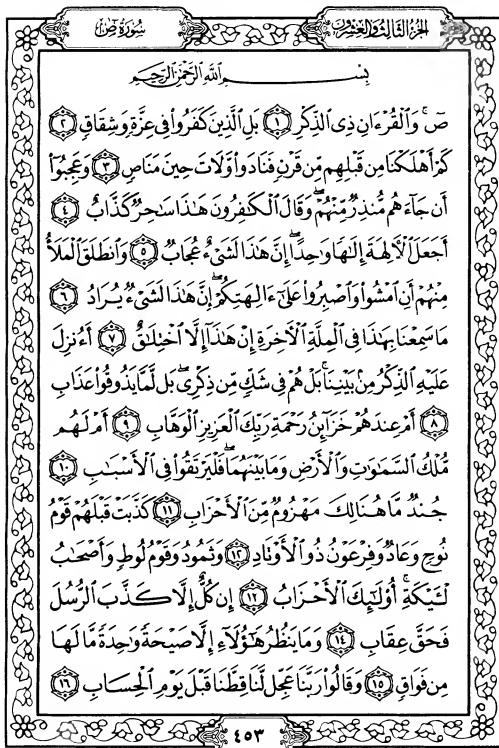 سُورَةُ صٓ
الجُزْءُ الثَّالِثُ وَالعِشْرُونَ
بِسْمِ اللَّهِ الرَّحْمَٰنِ الرَّحِيمِ
صٓۚ وَالْقُرْءَانِ ذِي الذِّكْرِ ١ بَلِ الَّذِينَ كَفَرُوا فِي عِزَّةٍ وَشِقَاقٍ ٢
كَمْ أَهْلَكْنَا مِن قَبْلِهِم مِّن قَرْنٍ فَنَادَوا وَّلَاتَ حِينَ مَنَاصٍ ٣ وَعَجِبُوا
أَن جَاءَهُم مُّنذِرٌ مِّنْهُمْۖ وَقَالَ الْكَٰفِرُونَ هَٰذَا سَٰحِرٌ كَذَّابٌ ٤
أَجَعَلَ الْءَالِهَةَ إِلَٰهًا وَٰحِدًاۖ إِنَّ هَٰذَا لَشَيْءٌ عُجَابٌ ٥ وَانطَلَقَ الْمَلَأُ
مِنْهُمْ أَنِ امْشُوا وَاصْبِرُوا عَلَىٰ ءَالِهَتِكُمْۖ إِنَّ هَٰذَا لَشَيْءٌ يُرَادُ ٦
مَا سَمِعْنَا بِهَٰذَا فِي الْمِلَّةِ الْءَاخِرَةِ إِنْ هَٰذَا إِلَّا اخْتِلَٰقٌ ٧ أَءُنزِلَ
عَلَيْهِ الذِّكْرُ مِن بَيْنِنَاۚ بَلْ هُمْ فِي شَكٍّ مِّن ذِكْرِيۖ بَل لَّمَّا يَذُوقُوا عَذَابِ
٨ أَمْ عِندَهُمْ خَزَائِنُ رَحْمَةِ رَبِّكَ الْعَزِيزِ الْوَهَّابِ ٩ أَمْ لَهُم
مُّلْكُ السَّمَٰوَٰتِ وَالْأَرْضِ وَمَا بَيْنَهُمَاۖ فَلْيَرْتَقُوا فِي الْأَسْبَٰبِ ١٠
جُندٌ مَّا هُنَالِكَ مَهْزُومٌ مِّنَ الْأَحْزَابِ ١١ كَذَّبَتْ قَبْلَهُمْ قَوْمُ
نُوحٍ وَعَادٌ وَفِرْعَوْنُ ذُو الْأَوْتَادِ ١٢ وَثَمُودُ وَقَوْمُ لُوطٍ وَأَصْحَٰبُ
لْـَٔيْكَةِۚ أُولَٰئِكَ الْأَحْزَابُ ١٣ إِن كُلٌّ إِلَّا كَذَّبَ الرُّسُلَ
فَحَقَّ عِقَابِ ١٤ وَمَا يَنظُرُ هَٰؤُلَاءِ إِلَّا صَيْحَةً وَٰحِدَةً مَّا لَهَا
مِن فَوَاقٍ ١٥ وَقَالُوا رَبَّنَا عَجِّل لَّنَا قِطَّنَا قَبْلَ يَوْمِ الْحِسَابِ ١٦
٤٥٣